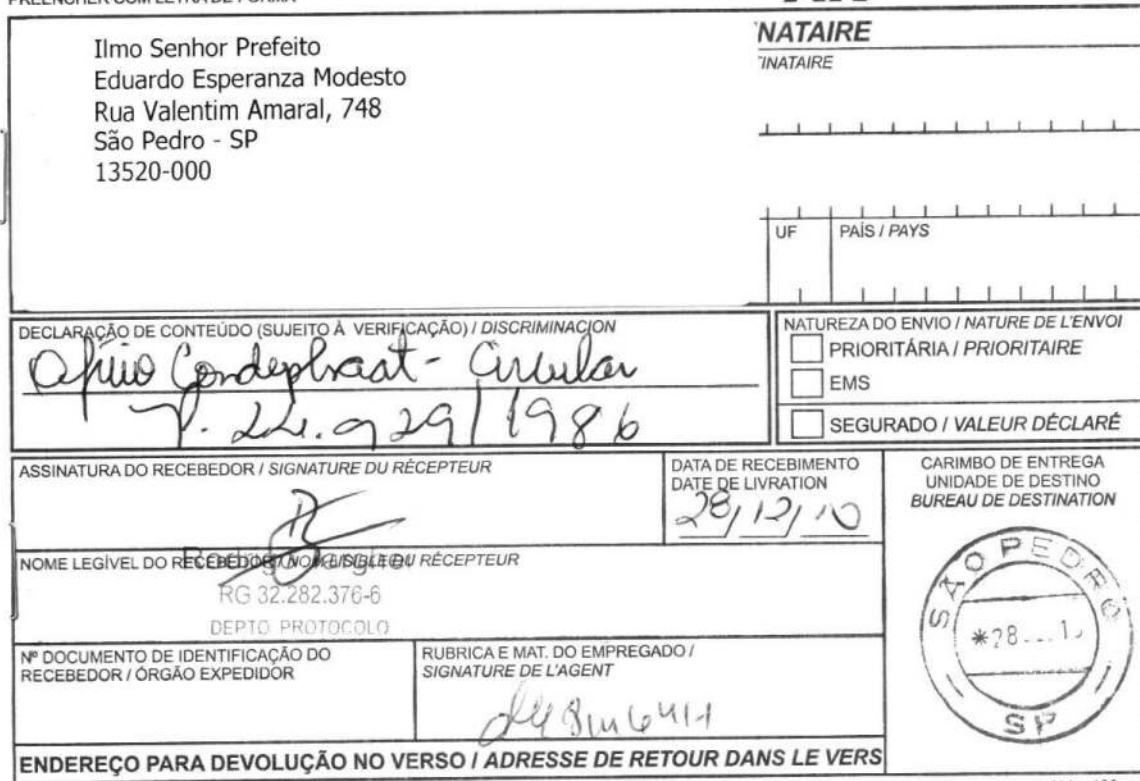 PREENCHER COM LETRA DE FORMA
NATAIRE
TINATAIRE
Ilmo Senhor Prefeito
Eduardo Esperanza Modesto
Rua Valentim Amaral, 748
São Pedro - SP
13520-000
UF
PAÍS / PAYS
DECLARAÇÃO DE CONTEÚDO (SUJEITO À VERIFICAÇÃO) / DISCRIMINACION
Ofício Condephaat - Circular
P. 24.929/1986
NATUREZA DO ENVIO / NATURE DE L'ENVOI
PRIORITÁRIA / PRIORITAIRE
EMS
SEGURADO / VALEUR DÉCLARÉ
ASSINATURA DO RECEBEDOR / SIGNATURE DU RÉCEPTEUR
DATA DE RECEBIMENTO
DATE DE LIVRATION
28/12/10
CARIMBO DE ENTREGA
UNIDADE DE DESTINO
BUREAU DE DESTINATION
NOME LEGÍVEL DO RECEBEDOR / NOM LISIBLE DU RÉCEPTEUR
RG 32.282.376-6
DEPTO PROTOCOLO
SÃO PEDRO
*28
SP
Nº DOCUMENTO DE IDENTIFICAÇÃO DO
RECEBEDOR / ÓRGÃO EXPEDIDOR
RUBRICA E MAT. DO EMPREGADO /
SIGNATURE DE L'AGENT
ENDEREÇO PARA DEVOLUÇÃO NO VERSO / ADRESSE DE RETOUR DANS LE VERS